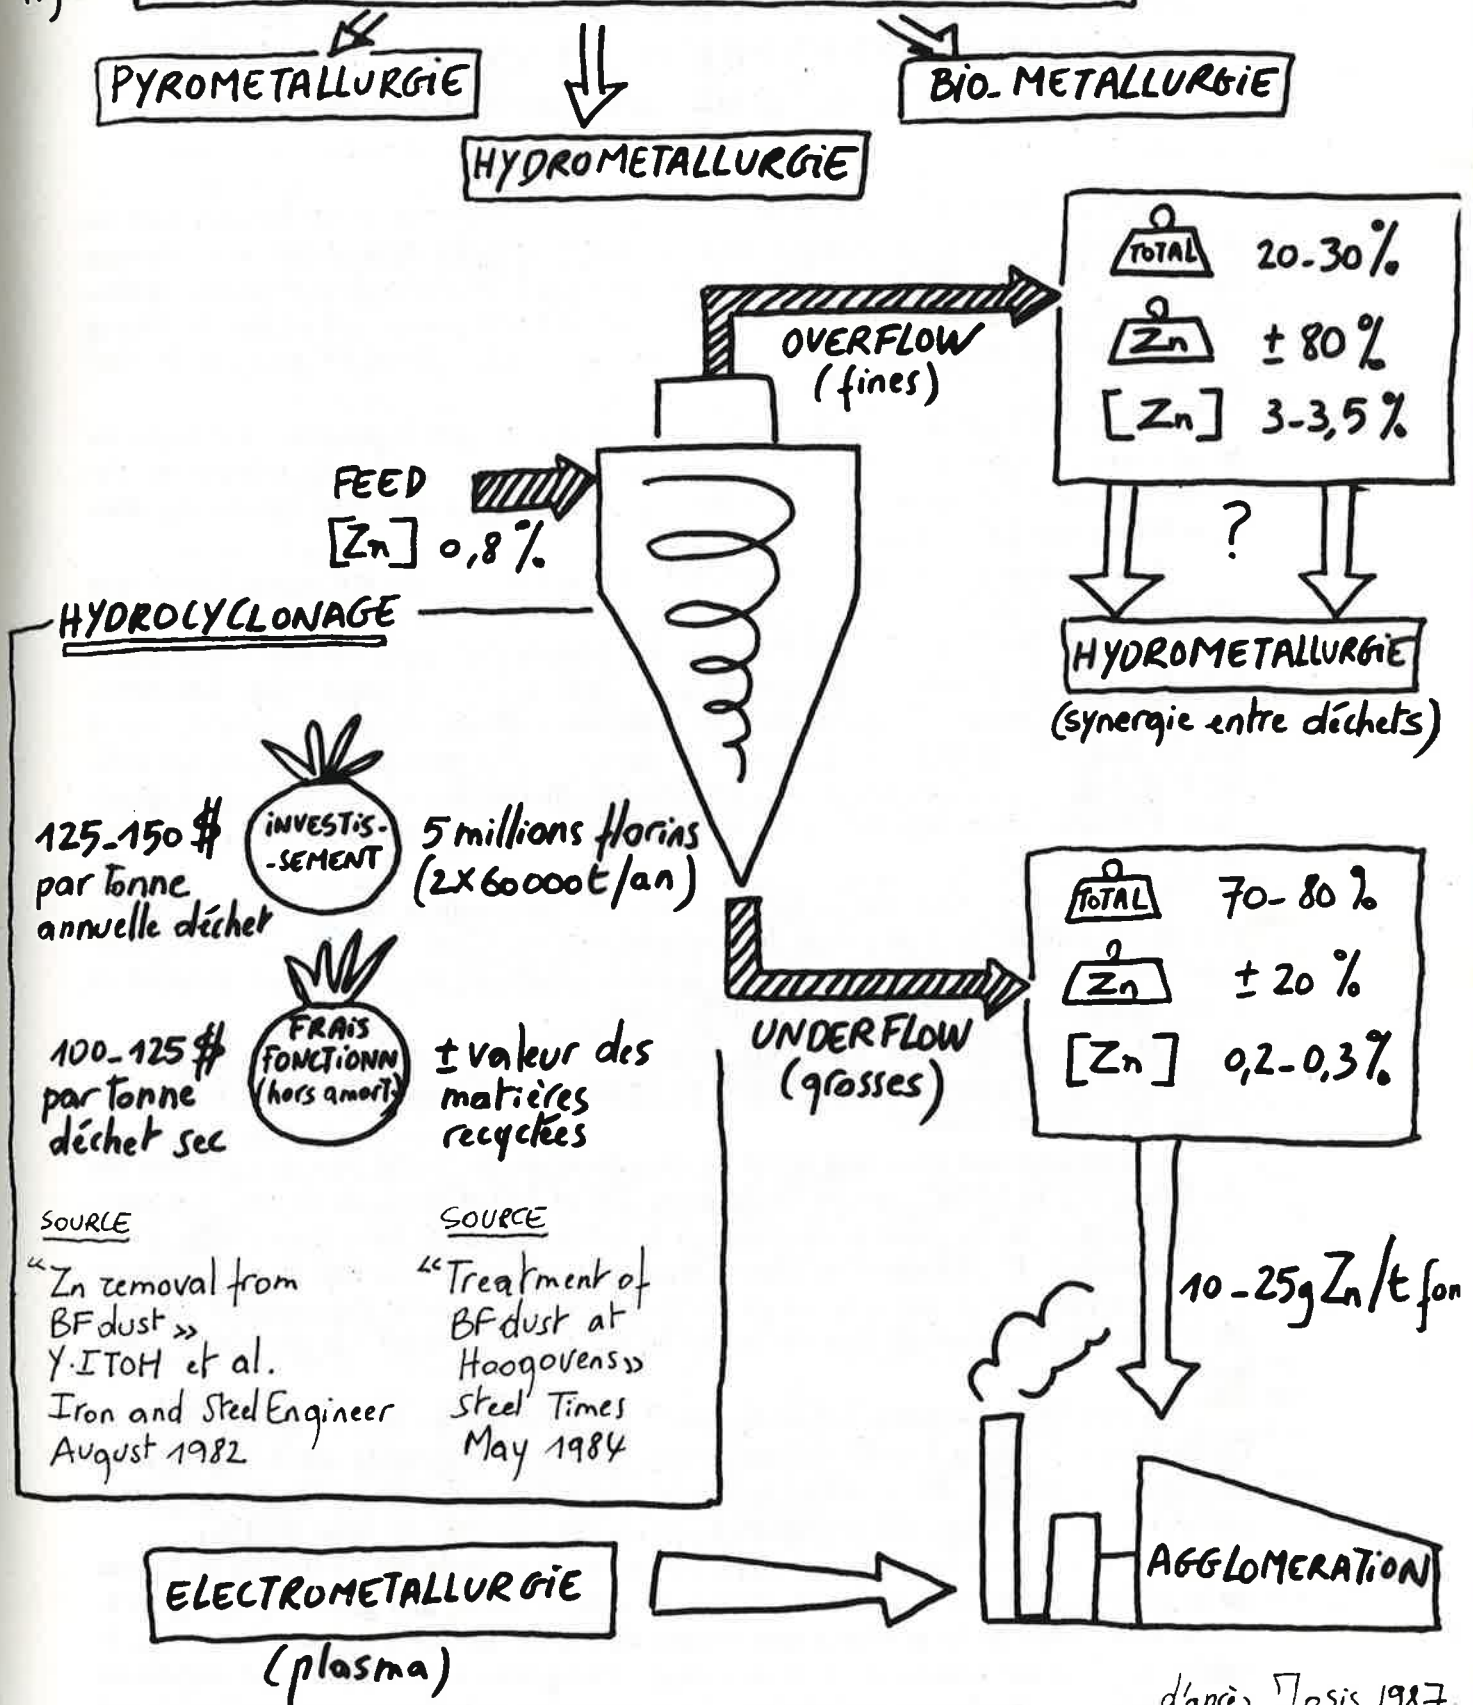 PYROMETALLURGIE
BIO-METALLURGIE
HYDROMETALLURGIE
TOTAL 20-30%
Zn ± 80%
[Zn] 3-3,5%
OVERFLOW
(fines)
FEED
[Zn] 0,8%
?
HYDROCYCLONAGE
HYDROMETALLURGIE
(synergie entre déchets)
125-150 $
par Tonne
annuelle déchet
INVESTIS-
-SEMENT
5 millions florins
(2X60000t/an)
TOTAL 70-80%
Zn ± 20%
[Zn] 0,2-0,3%
UNDERFLOW
(grosses)
100-125 $
par Tonne
déchet sec
FRAIS
FONCTIONN
(hors amort)
± valeur des
matières
recyclées
SOURCE
"Zn removal from
BF dust»
Y. ITOH et al.
Iron and Steel Engineer
August 1982
SOURCE
"Treatment of
BF dust at
Hoogovens»
Steel Times
May 1984
10-25g Zn/t fon
AGGLOMERATION
ELECTROMETALLURGIE
(plasma)
d'après 1987